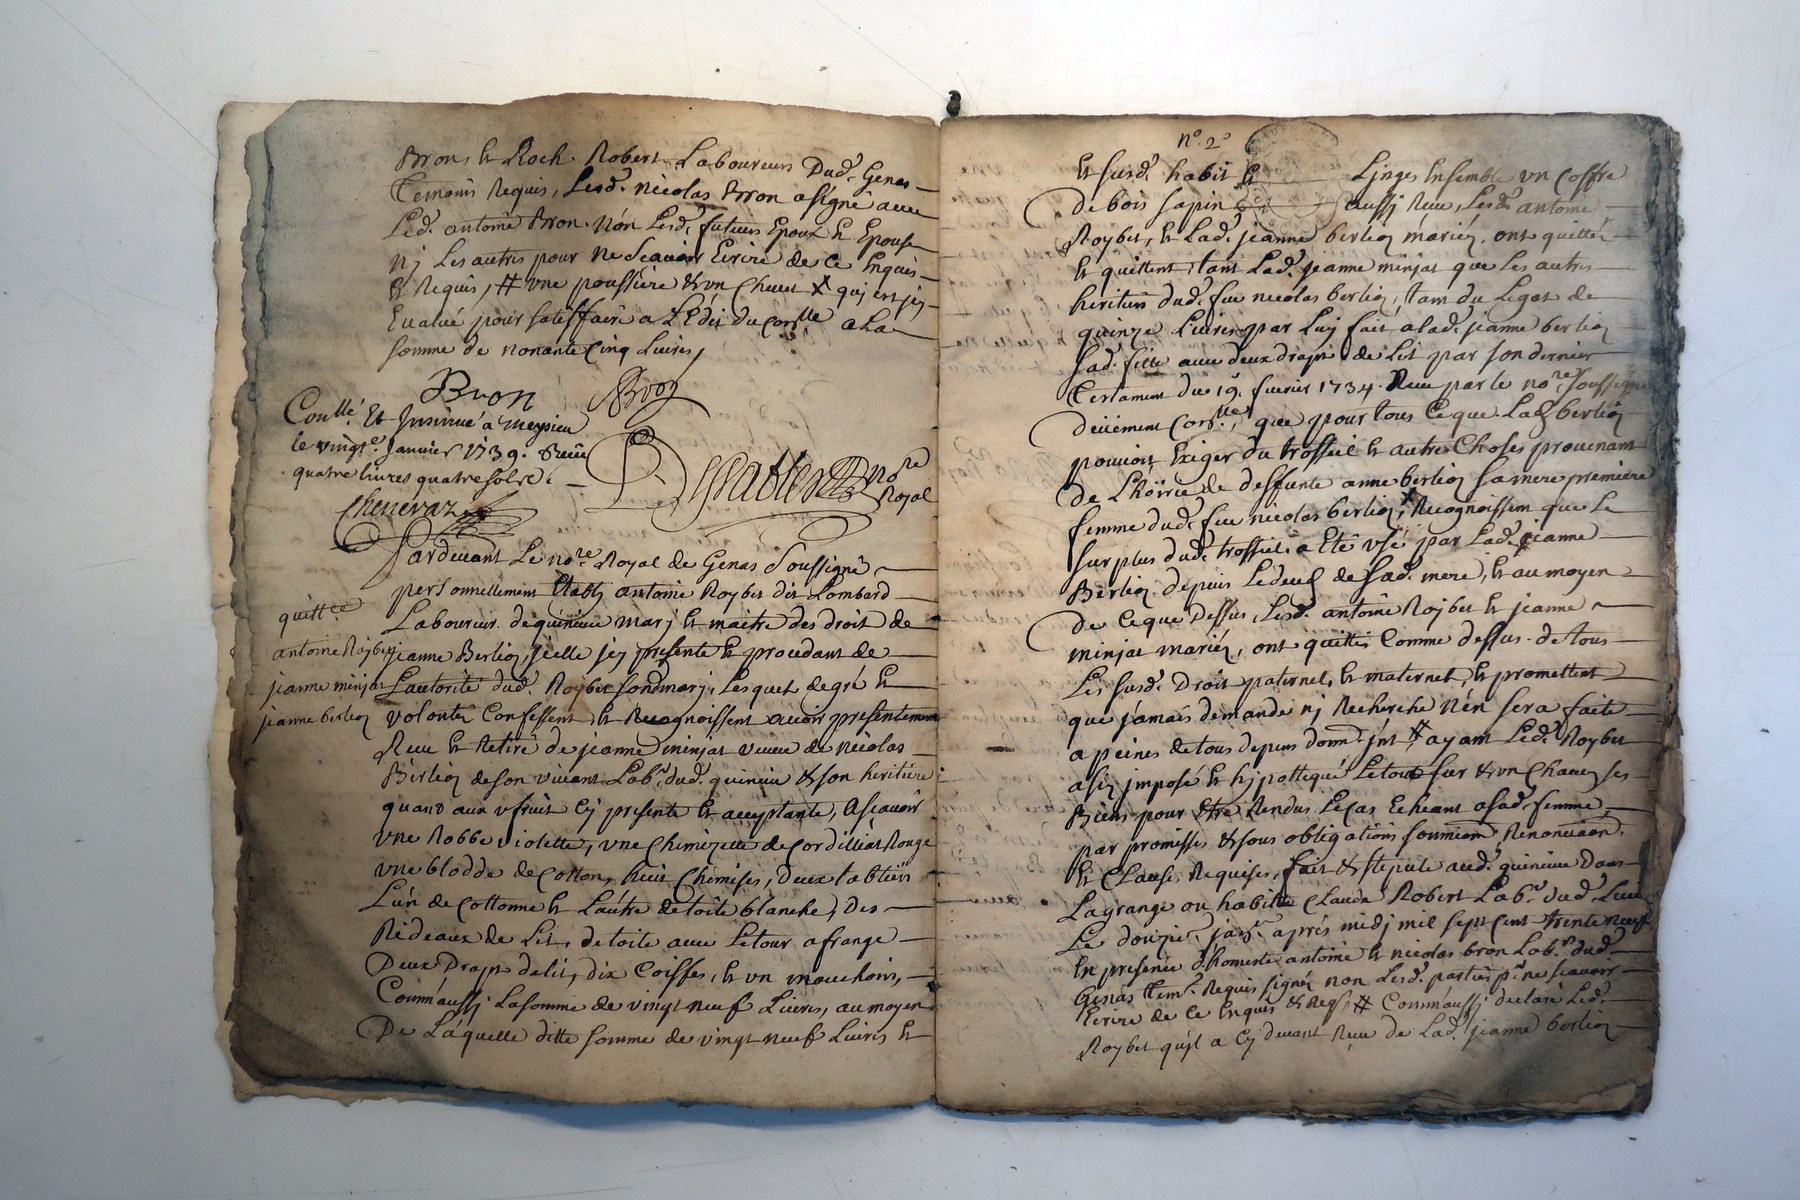 Bron, et Roch Robert Laboureurs Dud. Genas
temoins Requis, Lesd. nicolas Bron a signé avec
Led. antoine Bron. Non Lesd. futeurs Epoux et Epouse
nj Les autres pour ne Scavoir Ecrire de ce Enquis
et Requis, # une poussiere & un Chevet X quj est jcy
Evalué pour satisffaire a L'Edit du Con.lle a La
somme de nonante Cinq Livres,
Bron Bron
Con.llé Et Insinué á meysieu
le vingt.e Janvier 1739. Receu
quatre livres quatre sols
Chenevaz
no.re Royal
Pardevant Le no.re Royal de Genas Soussigné
personnellement Etably antoine Roybet dit Lombard
Laboureur de quincieu marj et maitre des droit de
jeanne Berlioz, jcelle jcy presente et procedant de
Lautorité dud. Roybet sond. marj, Lesquels de gré et
volonté Confessent et Recognoissent avoir presentement
Receu et Retiré de jeanne minjat veuve de nicolas
Berlioz de son vivant Lab.r dud. quincieu & son heritiere
quand aux usfruit cy presente et acceptante, Ascavoir
une Robbe violette, une Chemizette de Cordilliat Rouge
une blodde de Cotton, huit Chemises, Deux tabliers
L'un de Cottonne et Lautre de toile blanche, Des
Rideaux de Lit, de toile avec Le tour a frange
Deux Draps de lit, dix Coiffes, et un mouchoirs,
Comm'aussj La somme de vingt neuf Livres, au moyen
De Laquelle ditte somme de vingt neuf Livres et
quitt.ce
antoine Roybet
jeanne minjat
jeanne berlioz
n.o 2.o
et susd. habit et Linges Ensemble un Coffre
de bois sapin aussj Receu, Lesd. antoine
Roybet, et Lad. jeanne berlioz mariéz, ont quitté
et quittent, tant Lad. jeanne minjat que Les autres
heritiers dud. feu nicolas berlioz, tant du Legat de
quinze Livres par Luy fait a lad. jeanne berlioz
sad. fille avec deux draps de Lit par son dernier
testament du 19. fevrier 1734. Receu par le no.re soussigné
deüement Con.llé, que pour tous Ce que Lad. berlioz
pouvoit Exiger du trosseil et autres Choses provenant
de L'hoirie de deffunte anne berlioz sa mere premiere
femme dud. feu nicolas berlioz, Recognoissent que Le
surplus dud. trosseil a Eté usé par Lad. jeanne
Berlioz depuis Le deuil de sad. mere, et au moyen
de Ce que Dessus, Lesd. antoine Roybet et jeanne
minjat mariéz, ont quittés Comme dessus de tous
Les susd. Droit paternel, et maternel, et promettent
que jamais demande nj Recherche n'en sera faite
a peines de tous depens dom. jnt # ayant Led. Roybet
assis jmposé et hypottequé Le tout sur & un Chacun ses
Biens pour Etre Rendus Le Cas Echeant a sad. femme
par promisses & sous obligations soumions Renonciaons
et Clauses Requises, fait & stipulé aud. quincieu Dans
La grange ou habitte Claude Robert Lab.r dud. Lieu
Le douzie. janv.r aprés midj mil sept Cent trente neuf
en presence d'homeste antoine et nicolas bron Lab.rs dud.
Genas tem.s Requis signés non Lesd. parties p.r ne scavoir
Ecrire de Ce Enquis & Req.s # Comm'aussj declare Led.
Roybet qu'jl a Cy devant Receu de Lad. jeanne berlioz